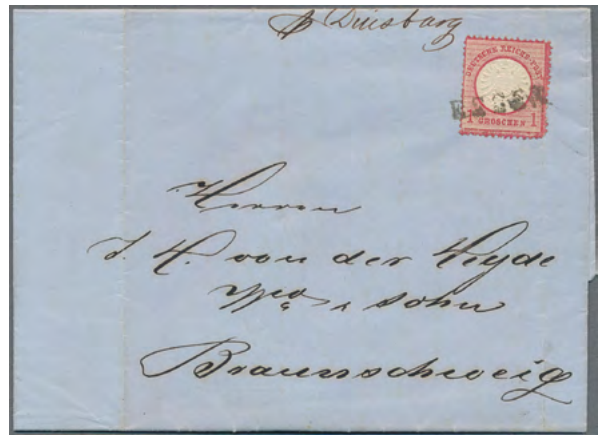 p Duisburg
DEUTSCHE REICHS-POST
1 GROSCHEN 1
Herren
J. H. von der Heyde
Wwe & Sohn
Braunschweig